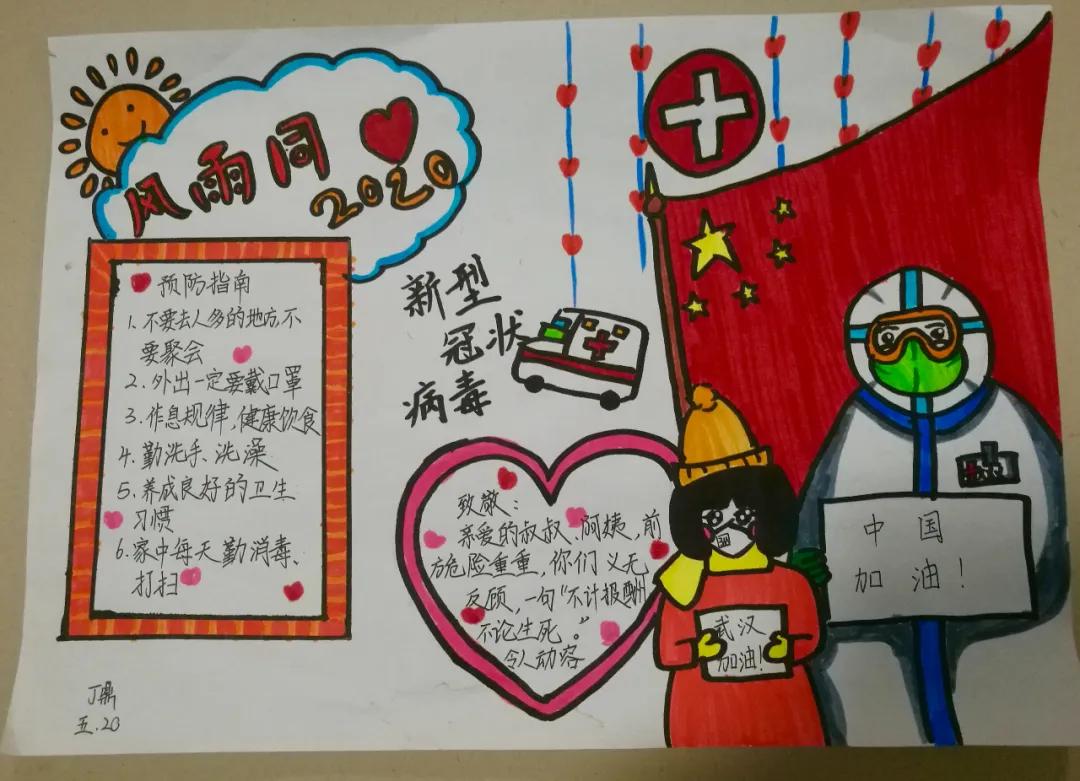 风雨同
2020
预防指南
1. 不要去人多的地方,不
要聚会
2. 外出一定要戴口罩
3. 作息规律,健康饮食
4. 勤洗手、洗澡
5. 养成良好的卫生
习惯
6. 家中每天勤消毒、
打扫
丁鼎
五.20
新型
冠状
病毒
致敬:
亲爱的叔叔、阿姨,前
方危险重重,你们义无
反顾,一句“不计报酬
不论生死。”
令人动容
武汉
加油!
中国
加油!